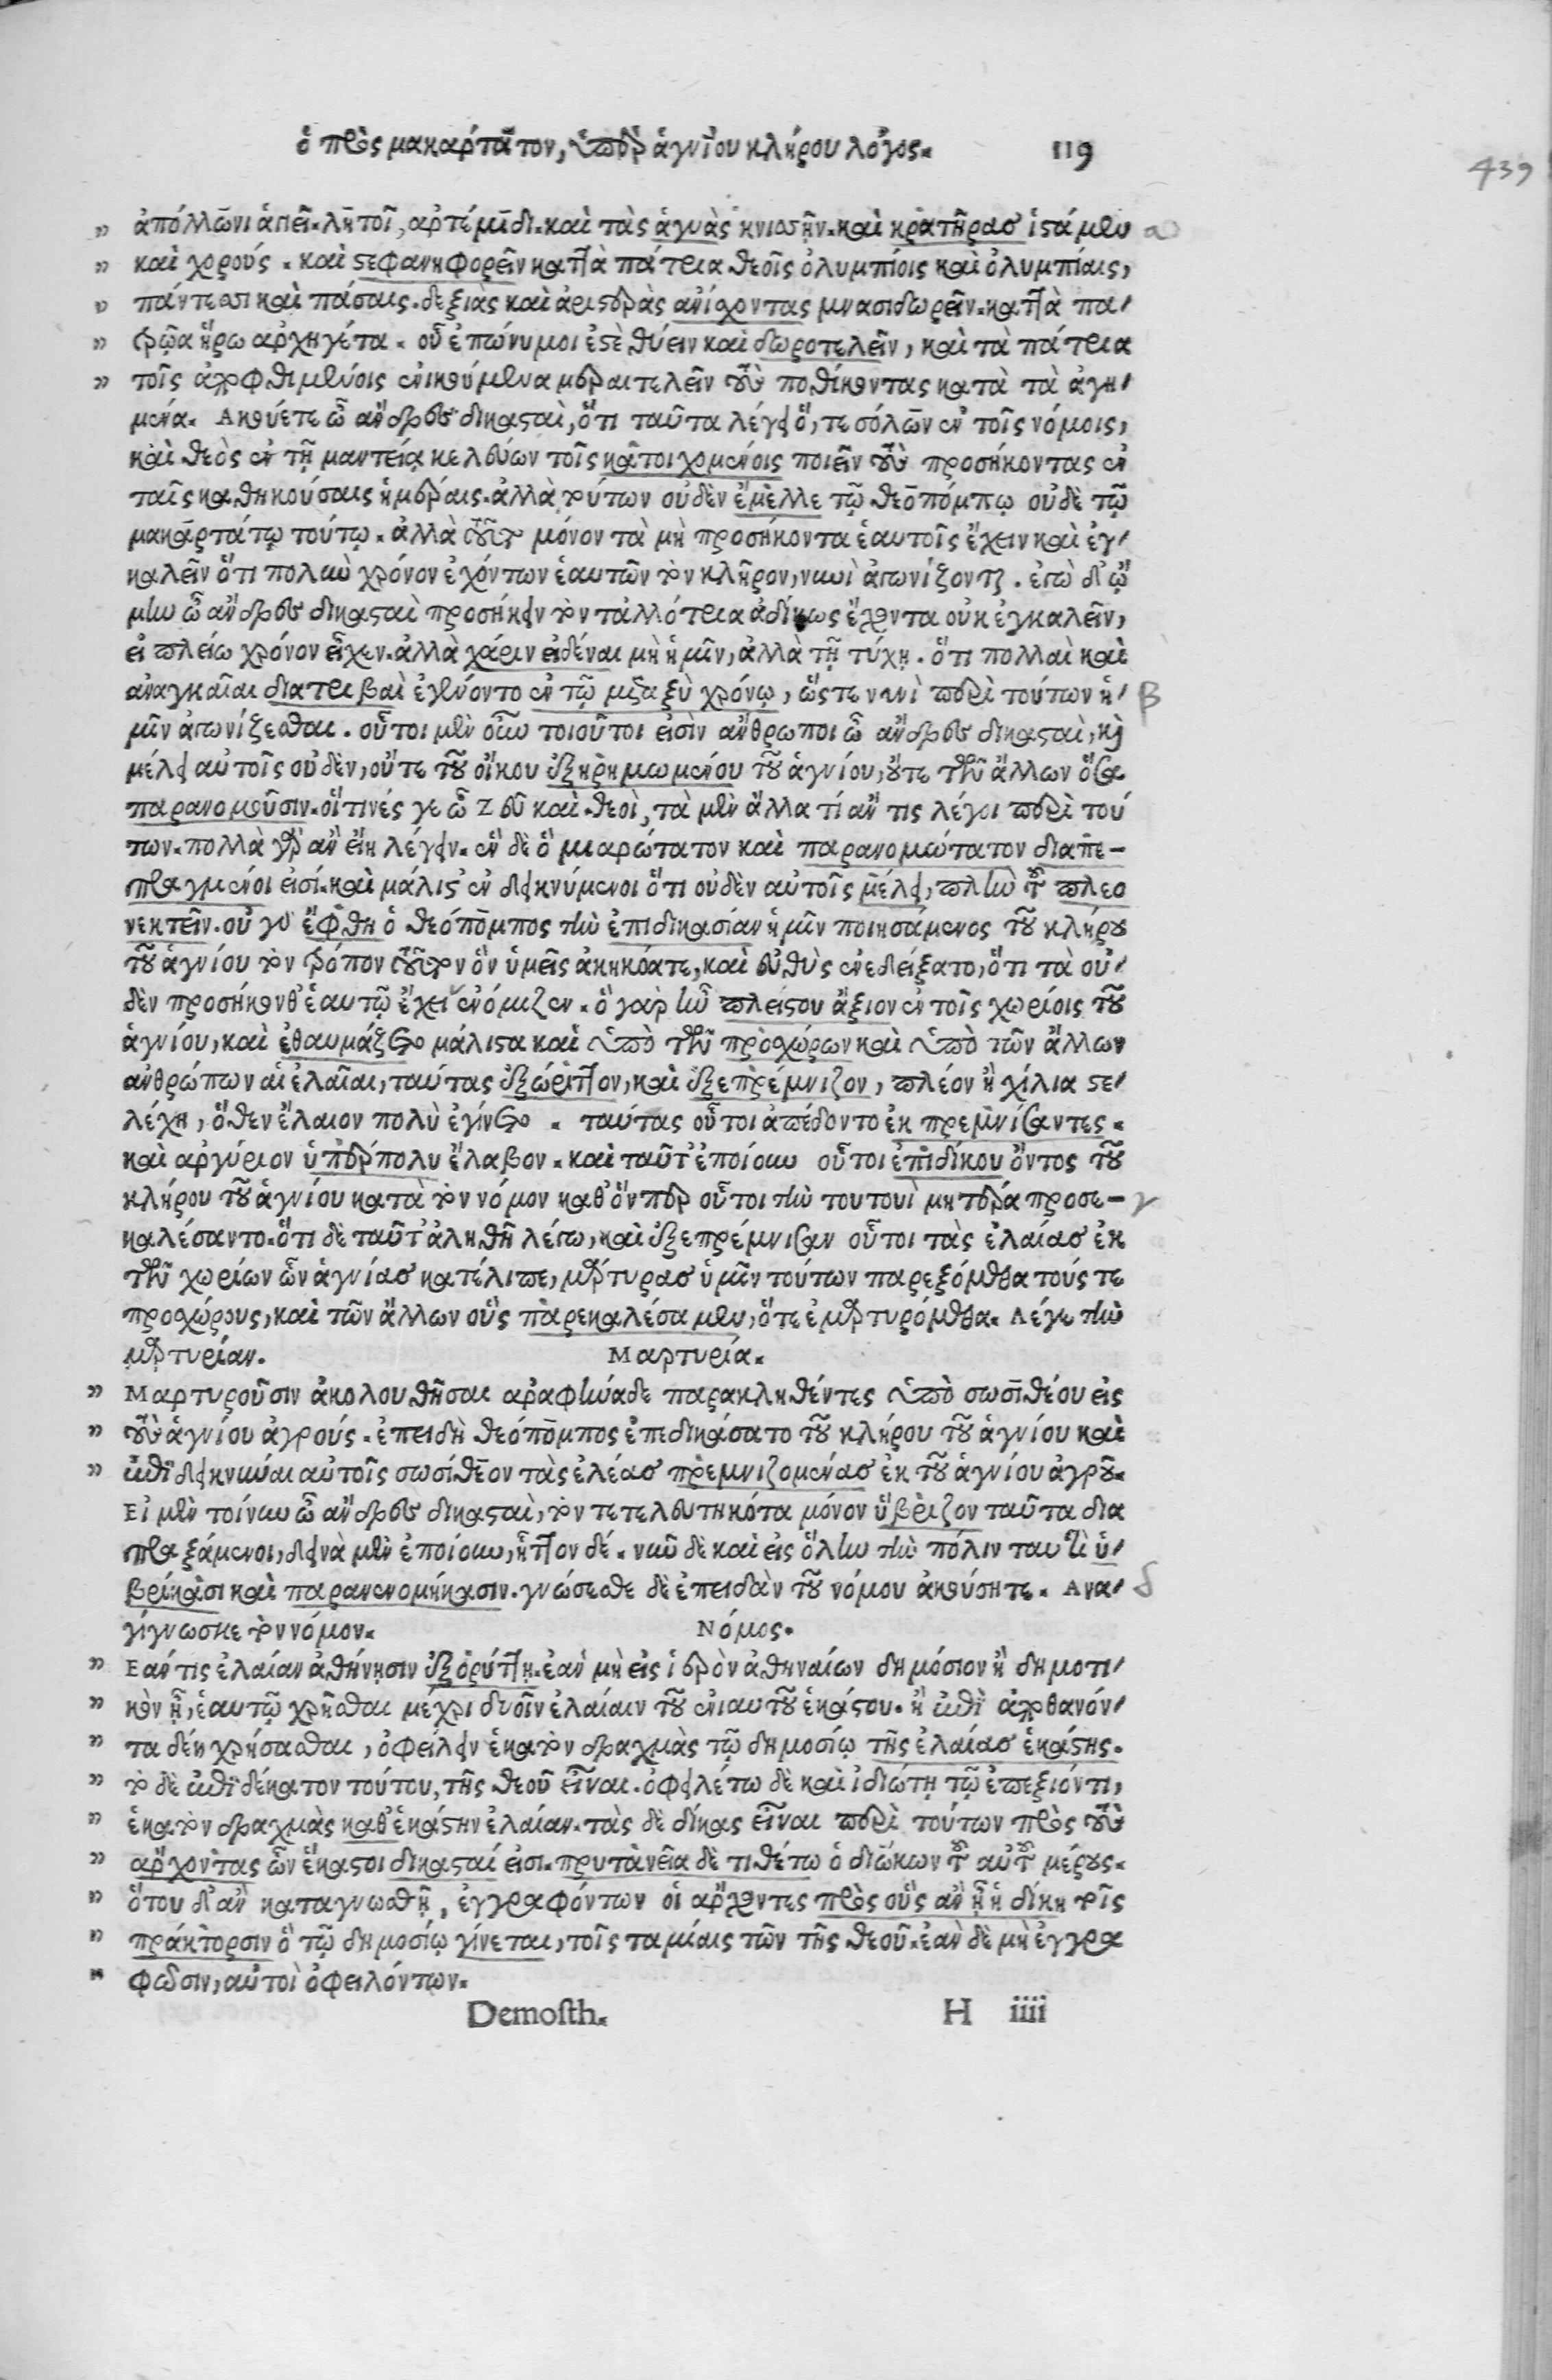 ὁ πρὸς μακαρτάτον, ὑπὲρ ἁγνίου κλήρου λόγος. 119
439
„ ἀπόλλωνι ἀγιεῖ. λητοῖ, ἀρτέμιδι. καὶ τὰς ἀγυὰς κνισσῆν. καὶ κρατῆρασ ἱστάμεν α
„ καὶ χορούς. καὶ στεφανηφορεῖν καττὰ πάτρια θεοῖς ὀλυμπίοις καὶ ὀλυμπίαις,
„ πάντεσσι καὶ πάσαις. δεξιὰς καὶ ἀριστερὰς ἀνίχοντας μνασιδωρεῖν. καττὰ πα/
„ τρῶα ἥρω ἀρχηγέτα. οὗ ἐπώνυμοι ἐστὲ θύειν καὶ δωροτελεῖν, καὶ τὰ πάτρια
„ τοῖς ἀποφθιμένοις ἐν ἱκνυμένα μέραι τελεῖν τοὺς ποθίκοντας κατὰ τὰ ἁγη/
μένα. Ἀκούετε ὦ ἄνδρες δικασταὶ, ὅτι ταῦτα λέγει ὅ, τε σόλων ἐν τοῖς νόμοις,
καὶ θεὸς ἐν τῇ μαντείᾳ κελεύων τοῖς κατοιχομένοις ποιεῖν τοὺς προσήκοντας ἐν
ταῖς καθηκούσαις ἡμέραις. ἀλλὰ τούτων οὐδὲν ἔμελλε τῷ θεοπόμπῳ οὐδὲ τῷ
μακαρτάτῳ τούτῳ. ἀλλὰ τοῦτο μόνον τὰ μὴ προσήκοντα ἑαυτοῖς ἔχειν καὶ ἐγ/
καλεῖν ὅτι πολὺν χρόνον ἐχόντων ἑαυτῶν τὸν κλῆρον, νυνὶ ἀγωνίζονται. ἐγὼ δ' ᾤ
μην ὦ ἄνδρες δικασταὶ προσήκειν τὸν τἀλλότρια ἀδίκως ἔχοντα οὐκ ἐγκαλεῖν,
εἰ πλείω χρόνον εἶχεν. ἀλλὰ χάριν εἰδέναι μὴ ἡμῖν, ἀλλὰ τῇ τύχῃ. ὅτι πολλαὶ καὶ
ἀναγκαῖαι διατριβαὶ ἐγένοντο ἐν τῷ μεταξὺ χρόνῳ, ὥστε νυνὶ περὶ τούτων ἡ/ β
μῖν ἀγωνίζεσθαι. οὗτοι μὲν οὖν τοιοῦτοι εἰσὶν ἄνθρωποι ὦ ἄνδρες δικασταὶ, καὶ
μέλει αὐτοῖς οὐδὲν, οὔτε τοῦ οἴκου ἐξηρημωμένου τοῦ ἁγνίου, οὔτε τῶν ἄλλων ὅσα
παρανομοῦσιν. οἵτινές γε ὦ Ζεῦ καὶ θεοὶ, τὰ μὲν ἄλλα τί ἄν τις λέγοι περὶ τού
των. πολλὰ γὰρ ἂν εἴη λέγειν. ἓν δὲ ὃ μιαρώτατον καὶ παρανομώτατον διαπε-
πραγμένοι εἰσί. καὶ μάλιστ' ἐνδεικνύμενοι ὅτι οὐδὲν αὐτοῖς μέλει, πλὴν τοῦ πλεο
νεκτεῖν. οὐ γὰρ ἔφθη ὁ θεόπομπος τὴν ἐπιδικασίαν ἡμῖν ποιησάμενος τοῦ κλήρου
τοῦ ἁγνίου τὸν τρόπον τοῦτον ὃν ὑμεῖς ἀκηκόατε, καὶ εὐθὺς ἐνεδείξατο, ὅτι τὰ οὐ/
δὲν προσήκονθ' ἑαυτῷ ἔχειν ἐνόμιζεν. ὃ γὰρ ἦν πλείστου ἄξιον ἐν τοῖς χωρίοις τοῦ
ἁγνίου, καὶ ἐθαυμάζετο μάλιστα καὶ ὑπὸ τῶν προσχώρων καὶ ὑπὸ τῶν ἄλλων
ἀνθρώπων αἱ ἐλαῖαι, ταύτας ἐξώρυττον, καὶ ἐξεπρέμνιζον, πλέον ἢ χίλια στε/
λέχη, ὅθεν ἔλαιον πολὺ ἐγίνετο. ταύτας οὗτοι ἀπέδοντο ἐκπρεμνίσαντες.
καὶ ἀργύριον ὑπέρπολυ ἔλαβον. καὶ ταῦτ' ἐποίουν οὗτοι ἐπιδίκου ὄντος τοῦ
κλήρου τοῦ ἁγνίου κατὰ τὸν νόμον καθ' ὅνπερ οὗτοι τὴν τουτουὶ μητέρα προσε- γ
καλέσαντο. ὅτι δὲ ταῦτ' ἀληθῆ λέγω, καὶ ἐξεπρέμνισαν οὗτοι τὰς ἐλαίασ ἐκ
τῶν χωρίων ὧν ἁγνίασ κατέλιπε, μάρτυρασ ὑμῖν τούτων παρεξόμεθα τούς τε
προσχώρους, καὶ τῶν ἄλλων οὓς παρεκαλέσαμεν, ὅτε ἐμαρτυρόμεθα. Λέγε τὴν
μαρτυρίαν. Μαρτυρία.
„ Μαρτυροῦσιν ἀκολουθῆσαι ἀραφηνάδε παρακληθέντες ὑπὸ σωσιθέου εἰς
„ τοὺς ἁγνίου ἀγρούς. ἐπειδὴ θεόπομπος ἐπεδικάσατο τοῦ κλήρου τοῦ ἁγνίου καὶ
„ ἐπιδεικνύναι αὐτοῖς σωσίθεον τὰς ἐλέασ πρεμνιζομένασ ἐκ τοῦ ἁγνίου ἀγροῦ.
Εἰ μὲν τοίνυν ὦ ἄνδρες δικασταὶ, τὸν τετελευτηκότα μόνον ὕβριζον ταῦτα δια
πραξάμενοι, δεινὰ μὲν ἐποίουν, ἧττον δέ. νῦν δὲ καὶ εἰς ὅλην τὴν πόλιν ταυτὶ ὑ/
βρίκασι καὶ παρανενομήκασιν. γνώσεσθε δὲ ἐπειδὰν τοῦ νόμου ἀκούσητε. Ἀνα/ δ
γίγνωσκε τὸν νόμον. Νόμος.
„ Ἐάν τις ἐλαίαν ἀθήνησιν ἐξορύττῃ. ἐὰν μὴ εἰς ἱερὸν ἀθηναίων δημόσιον ἢ δημοτι/
„ κὸν ᾖ, ἑαυτῷ χρῆσθαι μέχρι δυοῖν ἐλαίαιν τοῦ ἐνιαυτοῦ ἑκάστου. ἢ ἐπὶ ἀποθανόν/
„ τα δέῃ χρήσασθαι, ὀφείλειν ἑκατὸν δραχμὰς τῷ δημοσίῳ τῆς ἐλαίασ ἑκάστης.
„ τὸ δὲ ἐπιδέκατον τούτου, τῆς θεοῦ εἶναι. ὀφειλέτω δὲ καὶ ἰδιώτῃ τῷ ἐπεξιόντι,
„ ἑκατὸν δραχμὰς καθ' ἑκάστην ἐλαίαν. τὰς δὲ δίκας εἶναι περὶ τούτων πρὸς τοὺς
„ ἄρχοντας ὧν ἕκαστοι δικασταί εἰσι. πρυτανεῖα δὲ τιθέτω ὁ διώκων τοῦ αὑτοῦ μέρους.
„ ὅτου δ' ἂν καταγνωσθῇ, ἐγγραφόντων οἱ ἄρχοντες πρὸς οὓς ἂν ᾖ ἡ δίκη τοῖς
„ πράκτορσιν ὃ τῷ δημοσίῳ γίνεται, τοῖς ταμίαις τῶν τῆς θεοῦ. ἐὰν δὲ μὴ ἐγγρα
„ φωσιν, αὐτοὶ ὀφειλόντων.
Demosth. H iiii